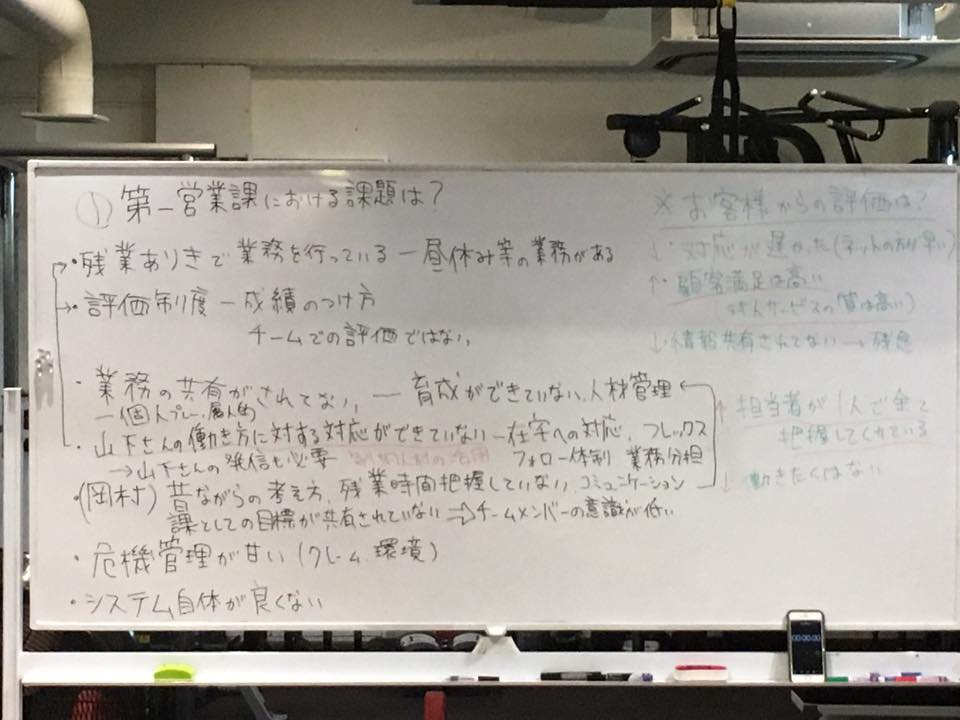 ① 第一営業課における課題は?
・残業ありきで業務を行っている ー昼休み等の業務がある
・評価制度 ー成績のつけ方
チームでの評価ではない
・業務の共有がされてない ー 育成ができていない、人材管理
ー個人プレー、属人的
・山下さんの働き方に対する対応ができていない ー在宅への対応、フレックス
→山下さんの発信も必要 フォロー体制 業務分担
・(岡村) 昔ながらの考え方、残業時間把握していない、コミュニケーション
課としての目標が共有されていない ⇒チームメンバーの意識が低い
・危機管理が甘い (クレーム、環境)
・システム自体が良くない
※ お客様からの評価は?
↓ 対応が遅かった (ネットの方が早い)
↑ 顧客満足は高い
対人サービスの質は高い)
↓ 情報共有されてない → 残念
↑ 担当者が1人で全て
把握してくれている
↓ 働きたくはない
00:00.00